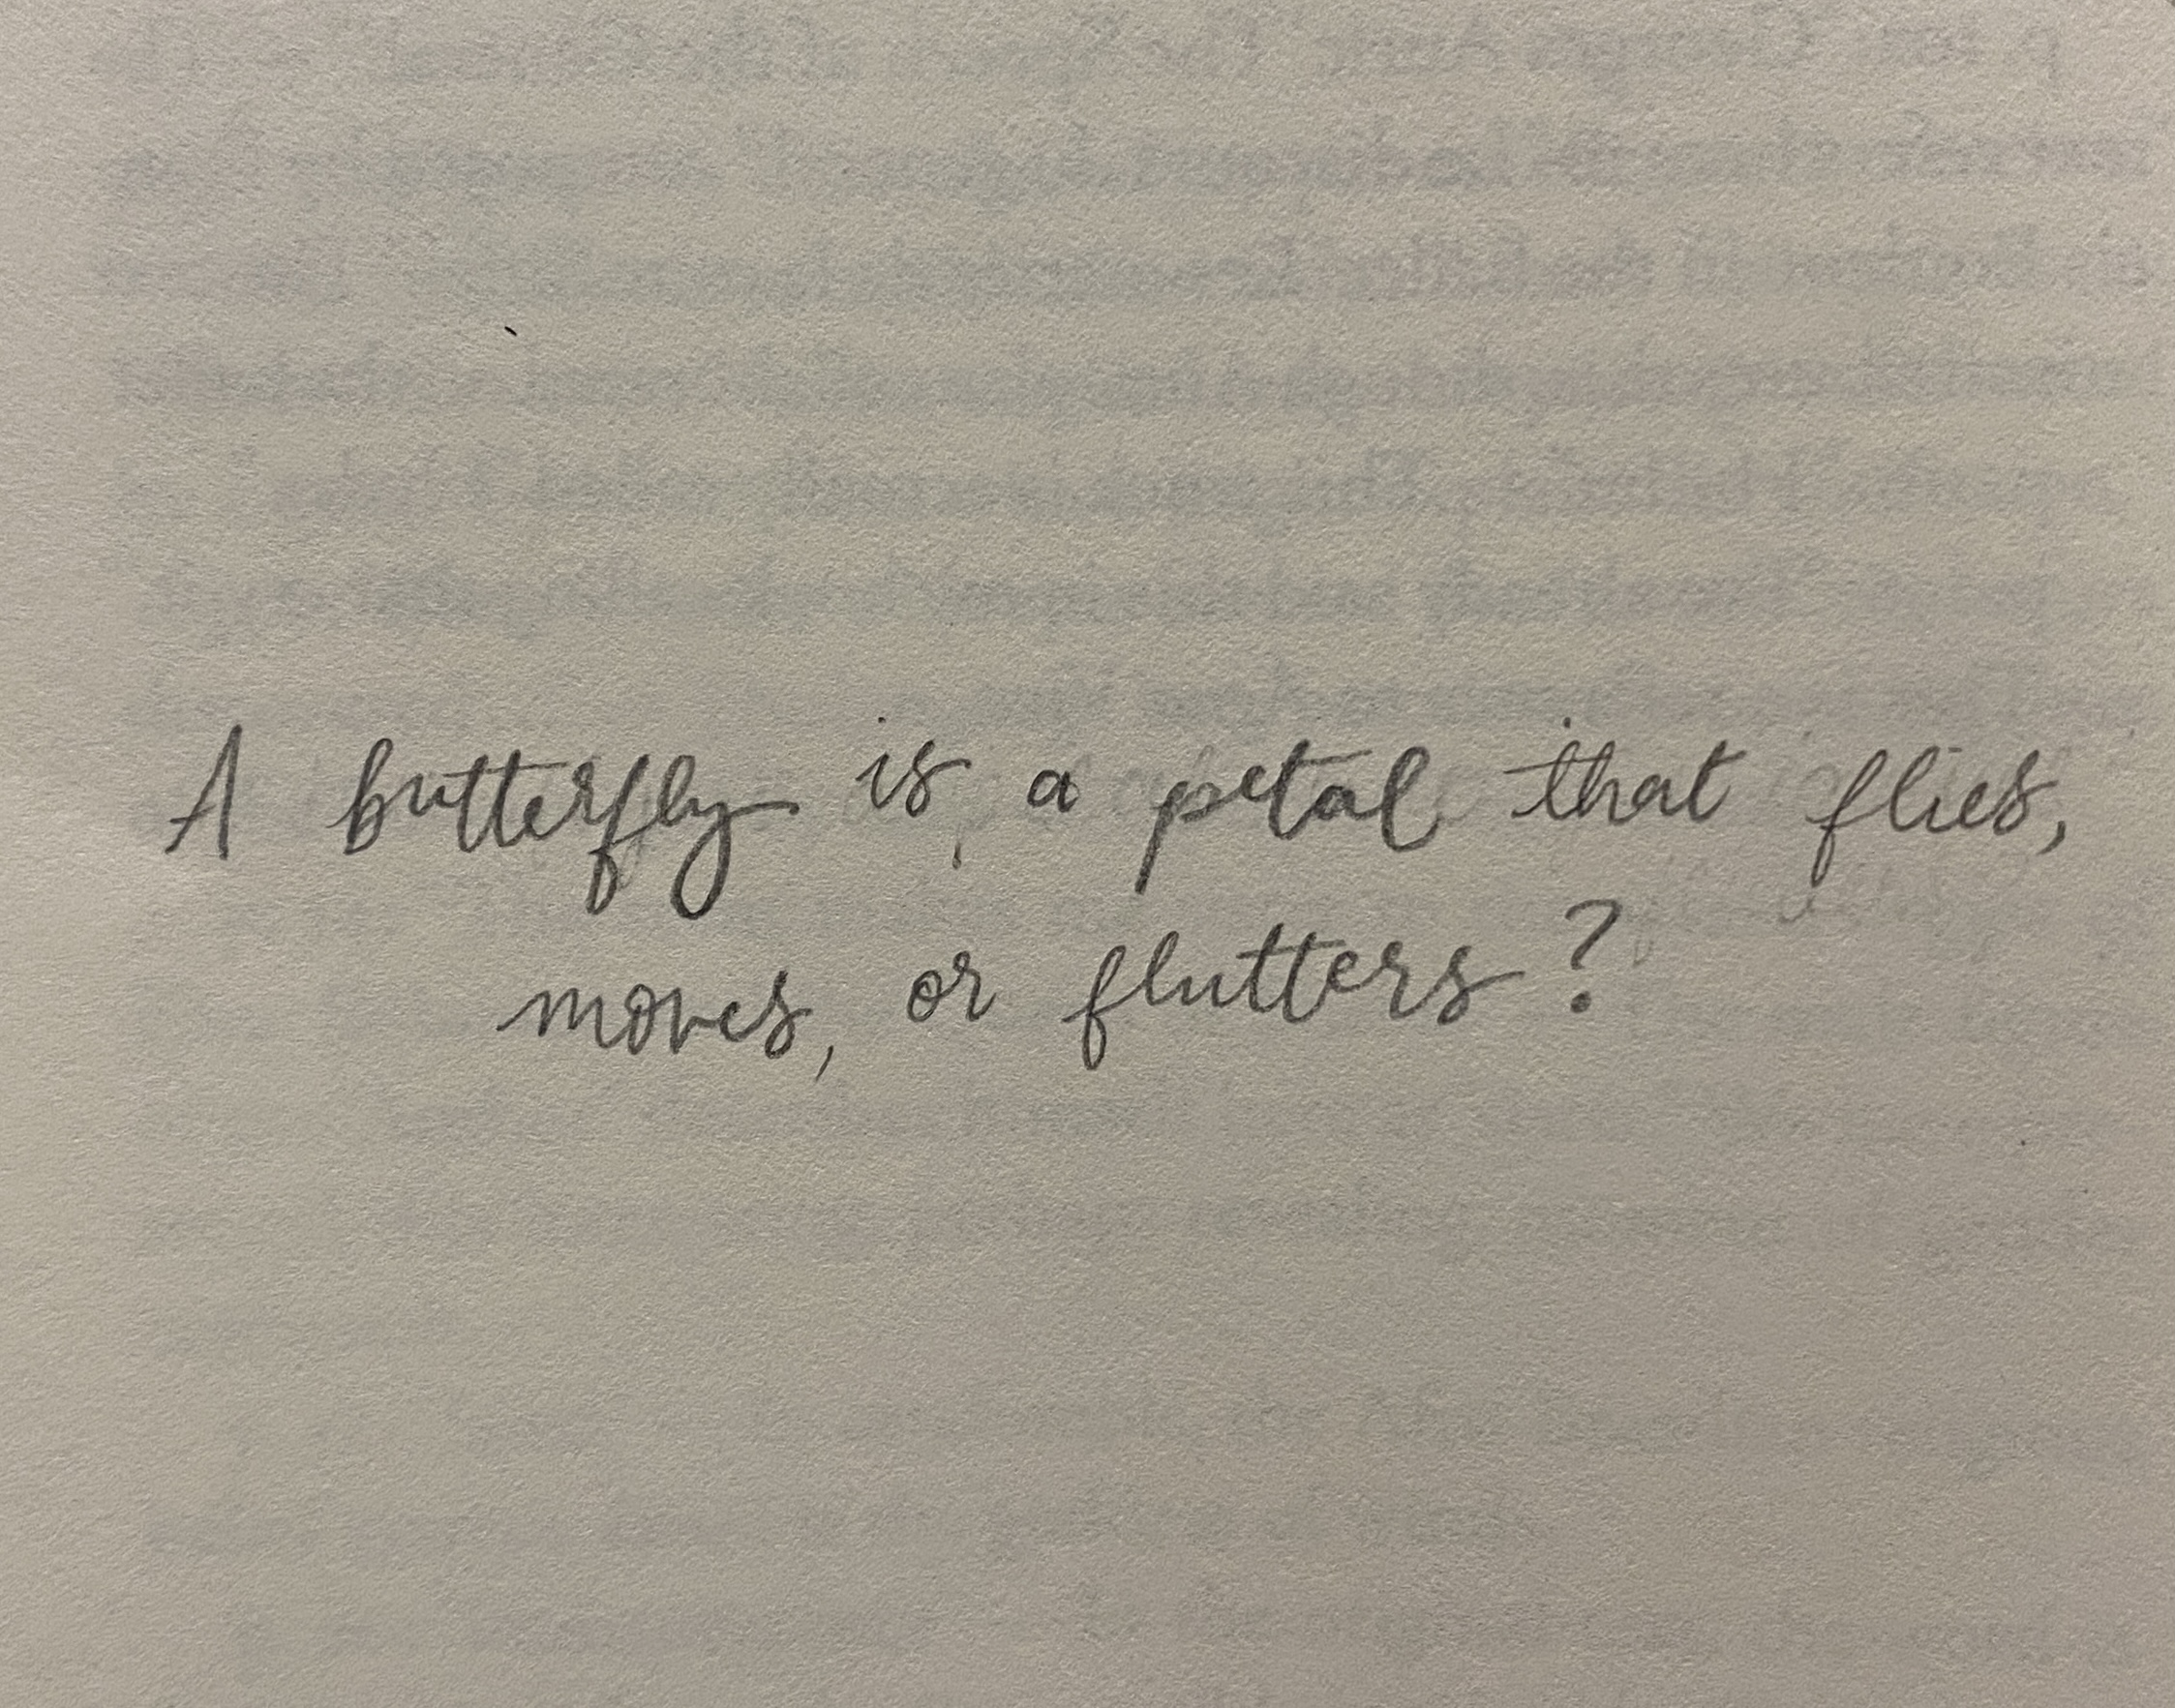 A butterfly is a petal that flies,
moves, or flutters?